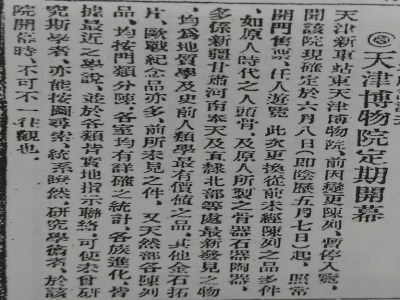 天津博物院定期開幕
天津新車站東天津博物院、前因變更陳列、暫停入覽、
開該院現確定於六月八日（即陰歷五月七日）起、照常
開門售票、任人遊覽、此次更換從前未經陳列之品多件
、如原人時代之人頭骨、及原人所製之骨器石器陶器、
多係新疆甘肅河南奉天及直隸北部等處最新發見之物
、均爲地質學及史前人類學最有價値之品、其他金石拓
片、歐戰紀念品亦多、前所未見之件、又天然部各陳列
品、均按門類分陳、各室均有詳確之統計、各族進化、皆
據最近之學說、並於各類皆實地指示聯絡、可使未曾研
究斯學者、亦能按圖尋索、統系瞭然、研究學術者、於該
院開幕時、不可不一往觀也、